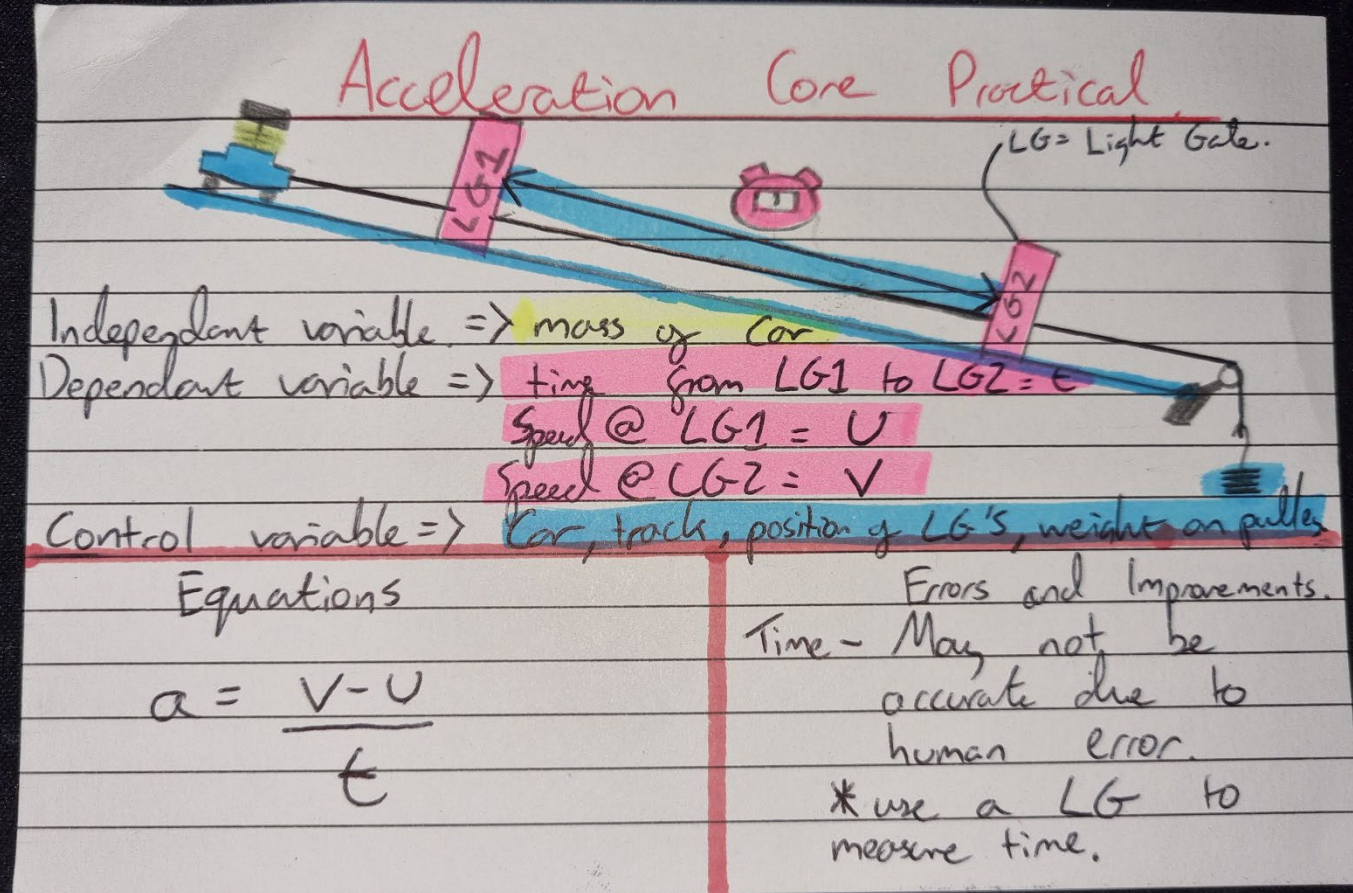 Acceleration Core Practical
LG= Light Gate.
LG1
LG2
Independant variable => mass of Car
Dependant variable => time from LG1 to LG2 = t
Speed @ LG1 = U
Speed @ LG2 = V
Control variable => Car, track, position of LG's, weight on pulley
Equations
a = V-U
t
Errors and Improvements.
Time - May not be
accurate due to
human error.
* use a LG to
measure time.